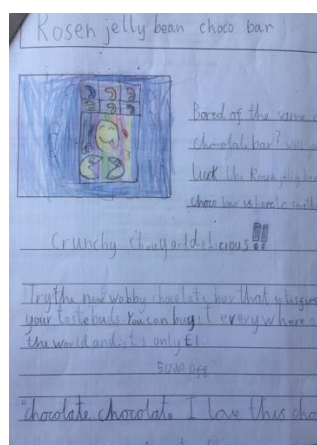 Rosen jelly bean choco bar
Bored of the same
chocolate bar? well
luck the Rosen jelly
choco bar is here to
Crunchy chewy and delicious!!
Try the new wobby choclate bar that
your tastebuds. You can bug it everywhere
the world and its only £1.
50% off
"chocolate chocolate I love this cho